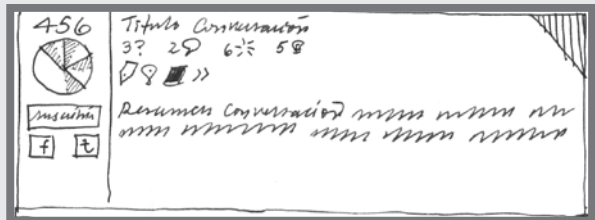 456
suscribir
f t
Titulo Conversación
3? 2 6 5
»
Resumen Conversación